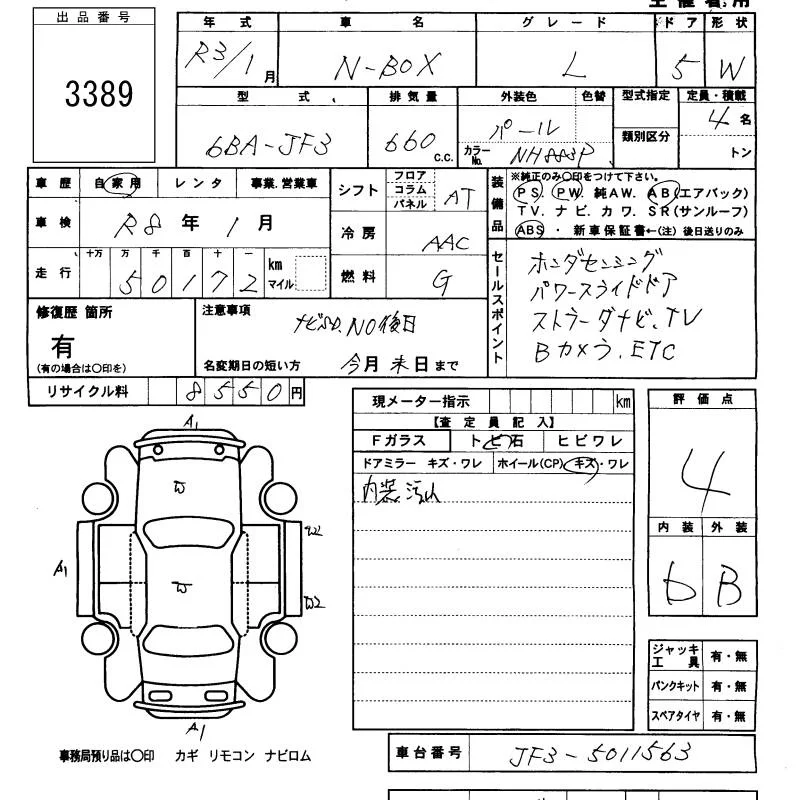 主催者用
出品番号
3389
年式 車名 グレード ドア 形状
R3/1月 N-BOX L 5 W
型式 排気量 外装色 色替 型式指定 定員・積載
6BA-JF3 660 C.C. パール 4名
カラーNo. NH883P 類別区分 トン
車歴 自家用 レンタ 事業.営業車
車検 R8年 1月
走行 十万 万 千 百 十 一
50172 km マイル
シフト フロア コラム パネル AT
冷房 AAC
燃料 G
装備品
※純正のみ〇印をつけて下さい。
PS. PW. 純AW. AB(エアバック)
TV. ナビ. カワ. SR(サンルーフ)
ABS ・ 新車保証書←(注) 後日送りのみ
セールスポイント
ホンダセンシング
パワースライドドア
ストラーダナビ.TV
Bカメラ.ETC
修復歴 箇所
有
(有の場合は〇印を)
注意事項
ナビSD.NO後日
名変期日の短い方 今月末日まで
リサイクル料 8550円
現メーター指示 km
【査定員記入】
Fガラス トビ石 ヒビワレ
ドアミラー キズ・ワレ ホイール(CP) キズ・ワレ
内装汚れ
評価点
4
内装 外装
b B
A1
W
A1
W2
W
W2
A1
ジャッキ工具 有・無
パンクキット 有・無
スペアタイヤ 有・無
事務局預り品は〇印 カギ リモコン ナビロム
車台番号 JF3-5011563